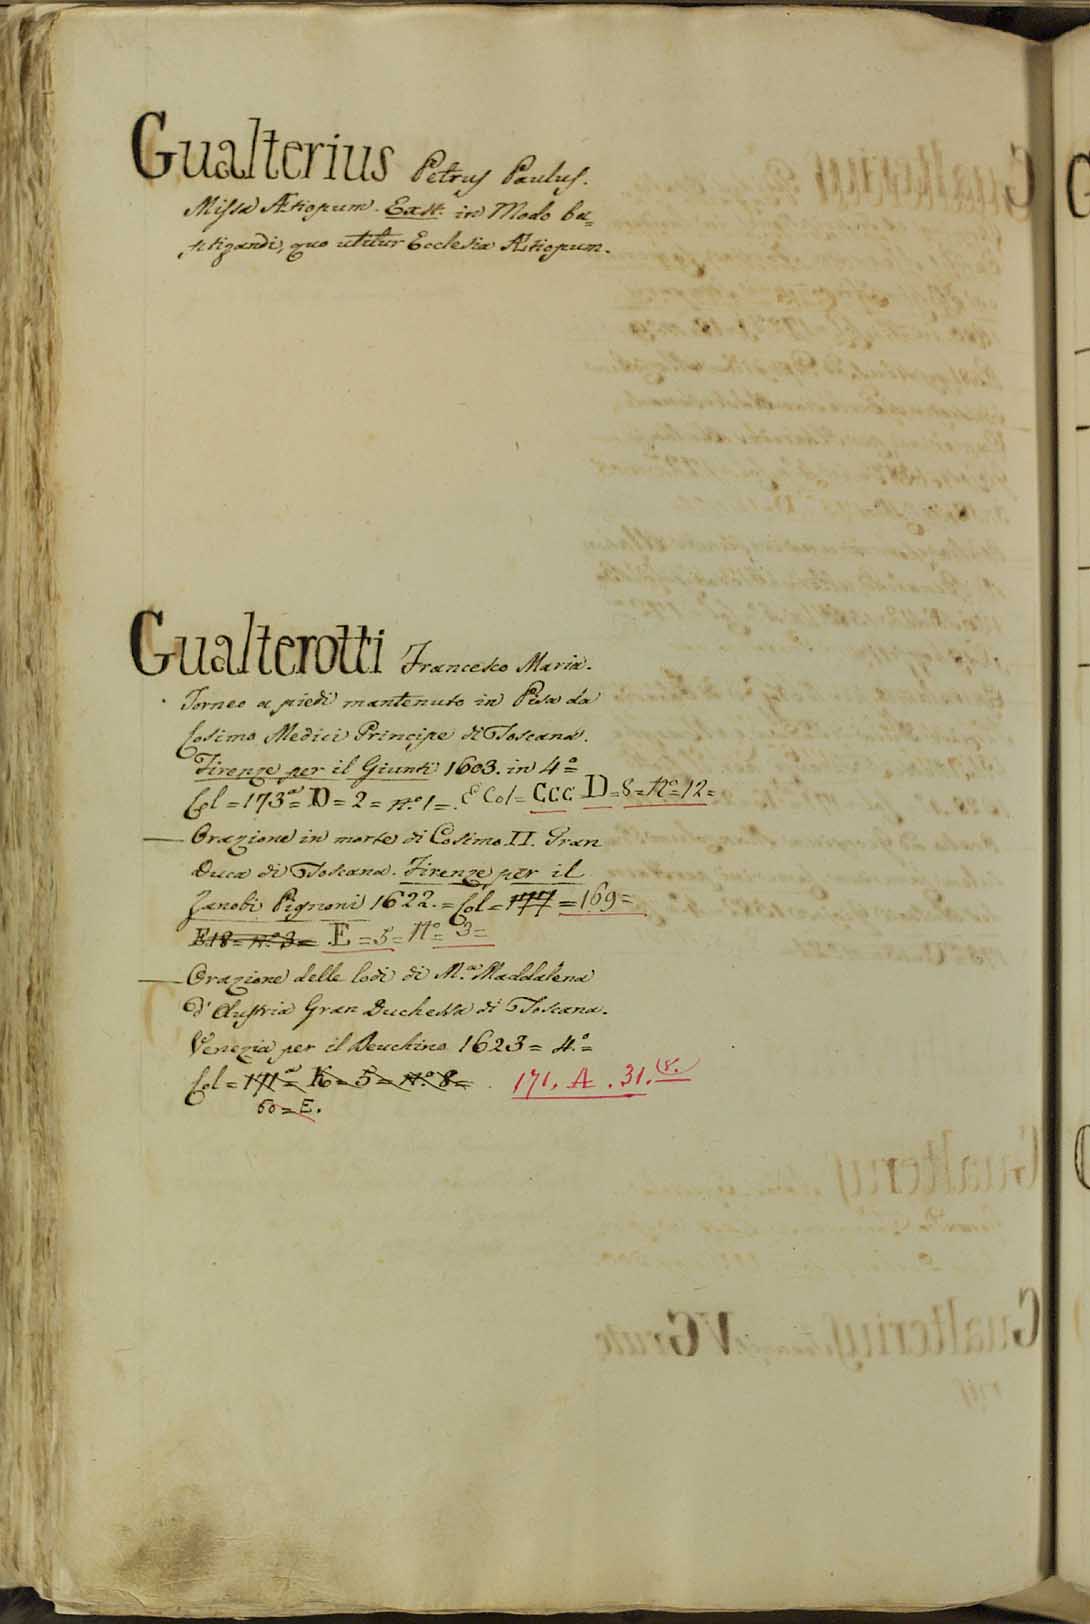 Gualterius Petrus Paulus.
Missa Ætiopum. Exst. in Modo ba=
ptizandi, quo utitur Ecclesia Ætiopum.
Gualterotti Francesco Maria.
Torneo a piedi mantenuto in Pisa da
Cosimo Medici Principe di Toscana.
Firenze per il Giunti 1603. in 4°=
Col = 173ª= D = 2 = n.° 1 =. E Col = CCC D = 8 = N°= 12 =
— Orazione in morte di Cosimo II. Gran
Duca di Toscana. Firenze per il
Zanobi Pignoni 1622. = Col = 177 = 169 =
E 18 = n.° 3 = E = 5 = N°= 3 =
— Orazione delle lodi di M.ª Maddalena
d'Austria Gran Duchessa di Toscana.
Venezia per il Deuchino 1623 = 4.°=
Col = 171ª= K = 5 = n.° 8 = 171. A. 31. (8.
60 = E.